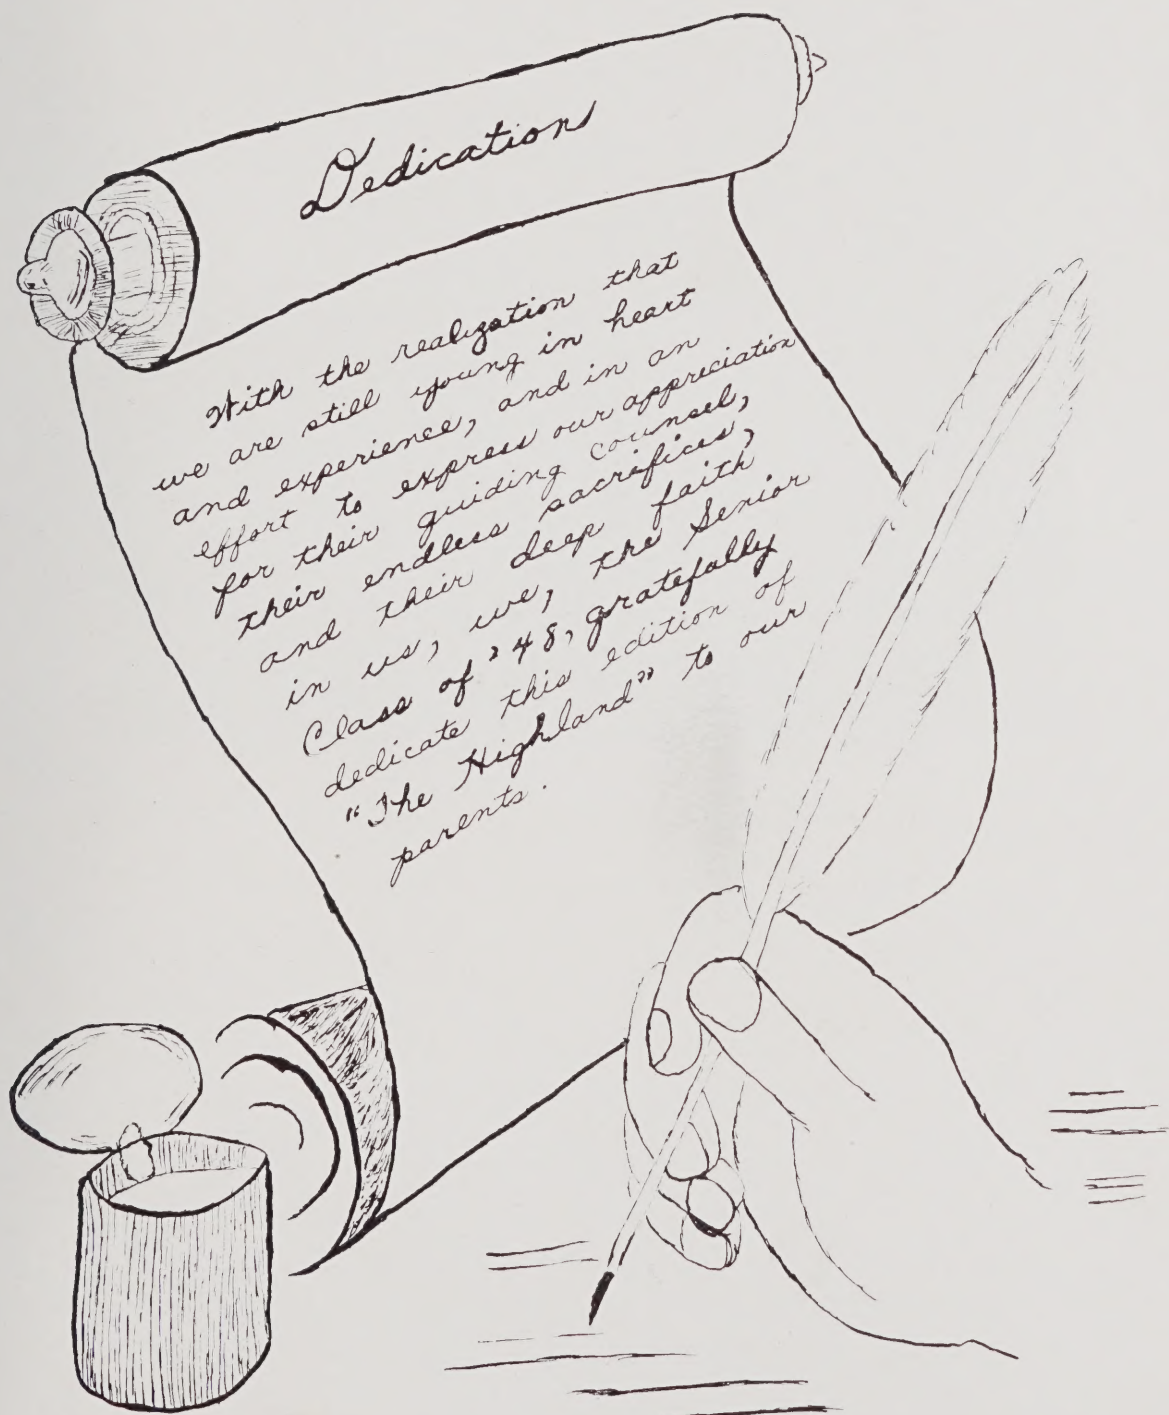 Dedication
With the realization that
we are still young in heart
and experience, and in an
effort to express our appreciation
for their guiding counsel,
their endless sacrifices,
and their deep faith
in us, we, the Senior
Class of '48, gratefully
dedicate this edition of
"The Highland" to our
parents.